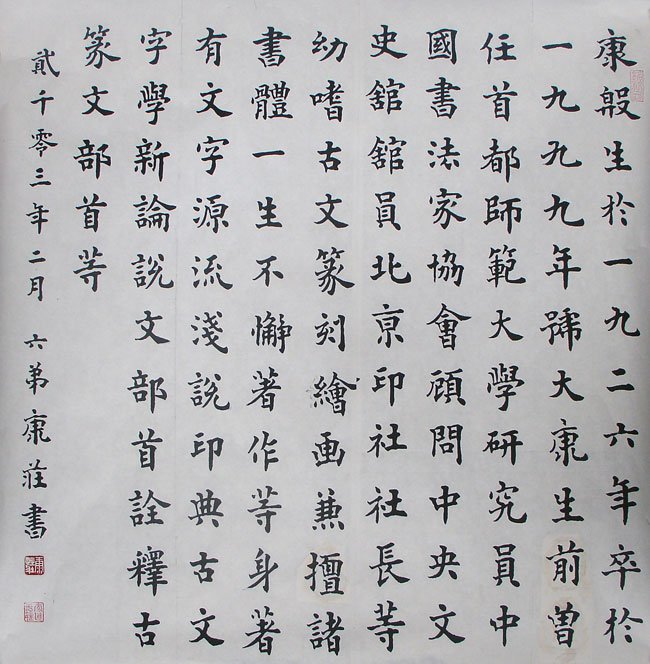 康殷生於一九二六年卒於
一九九九年號大康生前曾
任首都師範大學研究員中
國書法家協會顧問中央文
史舘舘員北京印社社長等
幼嗜古文篆刻繪画兼擅諸
書體一生不懈著作等身著
有文字源流淺說印典古文
字學新論說文部首詮釋古
篆文部首等
貳千零三年二月 六弟康莊書